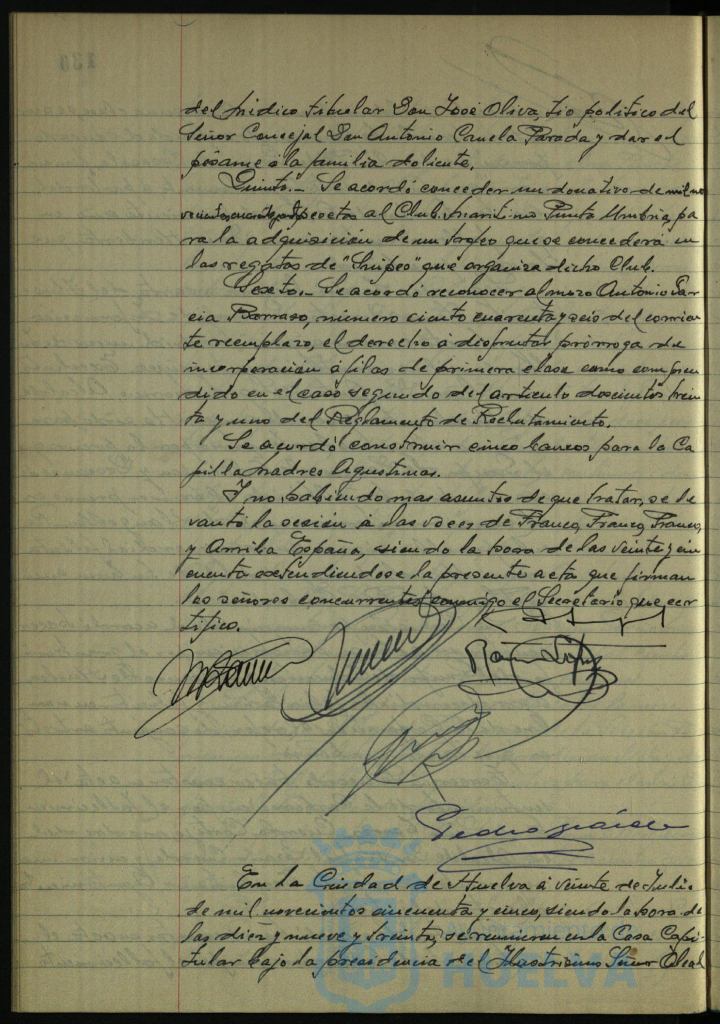 del médico titular Don José Oliva, tio politico del
Señor Concejal Don Antonio Parada y dar el
pésame á la familia doliente.
Quinto.- Se acordó conceder un donativo de mil no
pesetas al Club maritimo Punta Umbria, pa
ra la adquisición de un trofeo que se concederá en
las regatas de "Snipes" que organiza dicho Club.
Sexto.- Se acordó reconocer al mozo Antonio Gar
cia Barroso, número ciento cuarenta y seis del corrien
te reemplazo, el derecho á disfrutar prórroga de
incorporación á filas de primera clase como compren
dido en el caso segundo del articulo doscientos trein
ta y uno del Reglamento de Reclutamiento.
Se acordó construir cinco bancos para la Ca
pilla madres Agustinas.
Y no habiendo mas asuntos de que tratar, se le
vantó la sesión á las voces de Franco, Franco, Franco,
y Arriba España, siendo la hora de las veinte y cin
cuenta extendiendose la presente acta que firman
los señores concurrentes conmigo el Secretario que cer
tifico.
En la Ciudad de Huelva á veinte de Julio
de mil novecientos cincuenta y cinco, siendo la hora de
las diez y nueve y treinta, se reunieron en la Casa Capi
tular bajo la presidencia de el Ilustrisimo Señor Alcal
HUELVA